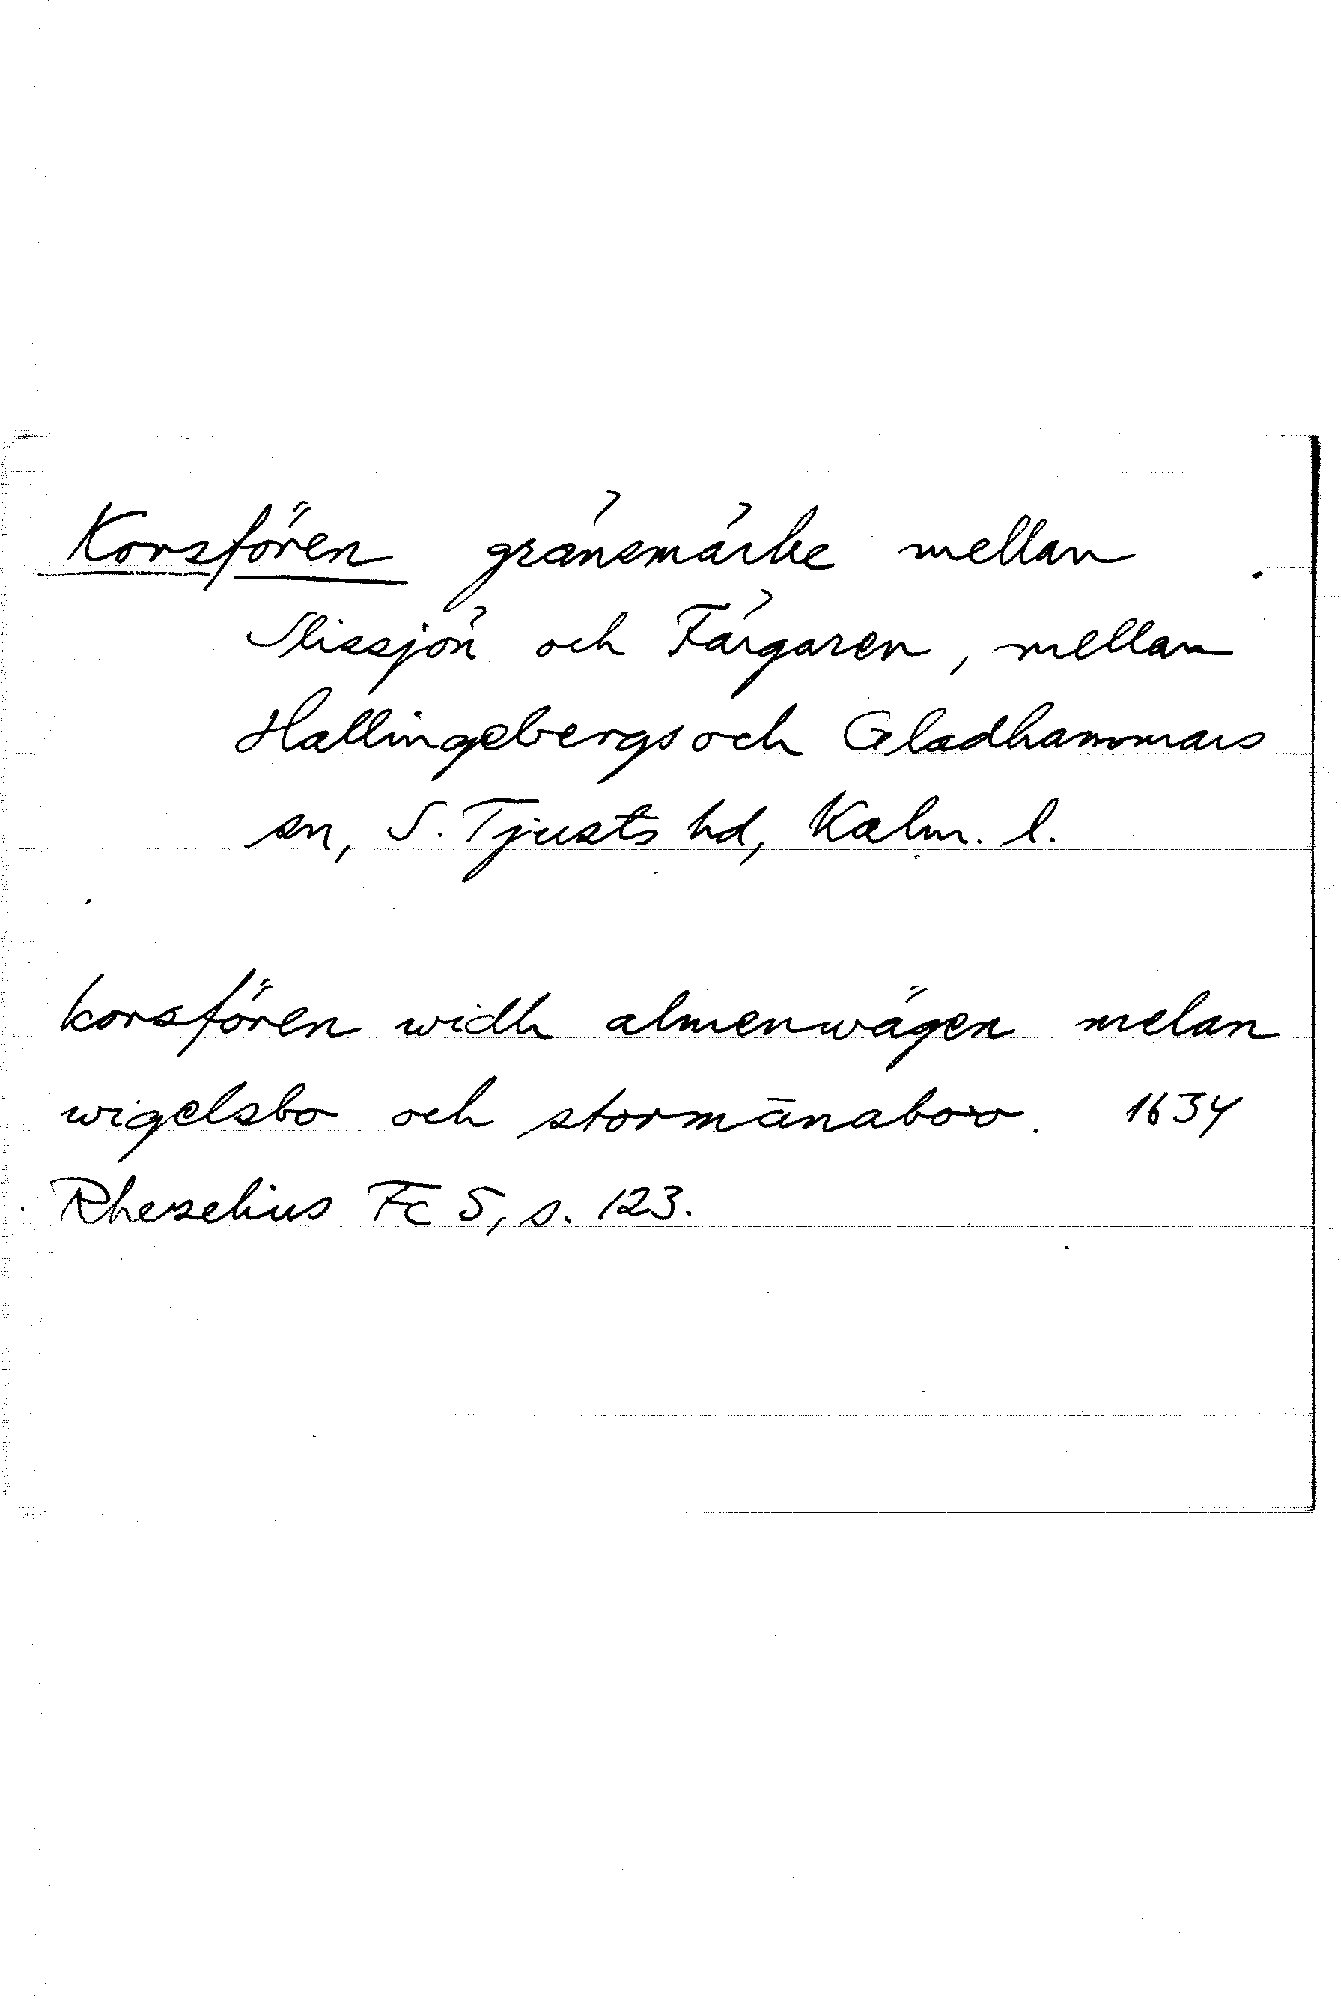 Korsfören gränsmärke mellan
Slissjön och Färgaren, mellan
Hallingebergs och Gladhammars
sn, S. Tjusts hd, Kalm. l.
korsfören widh almenwägen melan
wigelsbo och stormānaboo. 1634
Rhezelius Fc 5, s. 123.